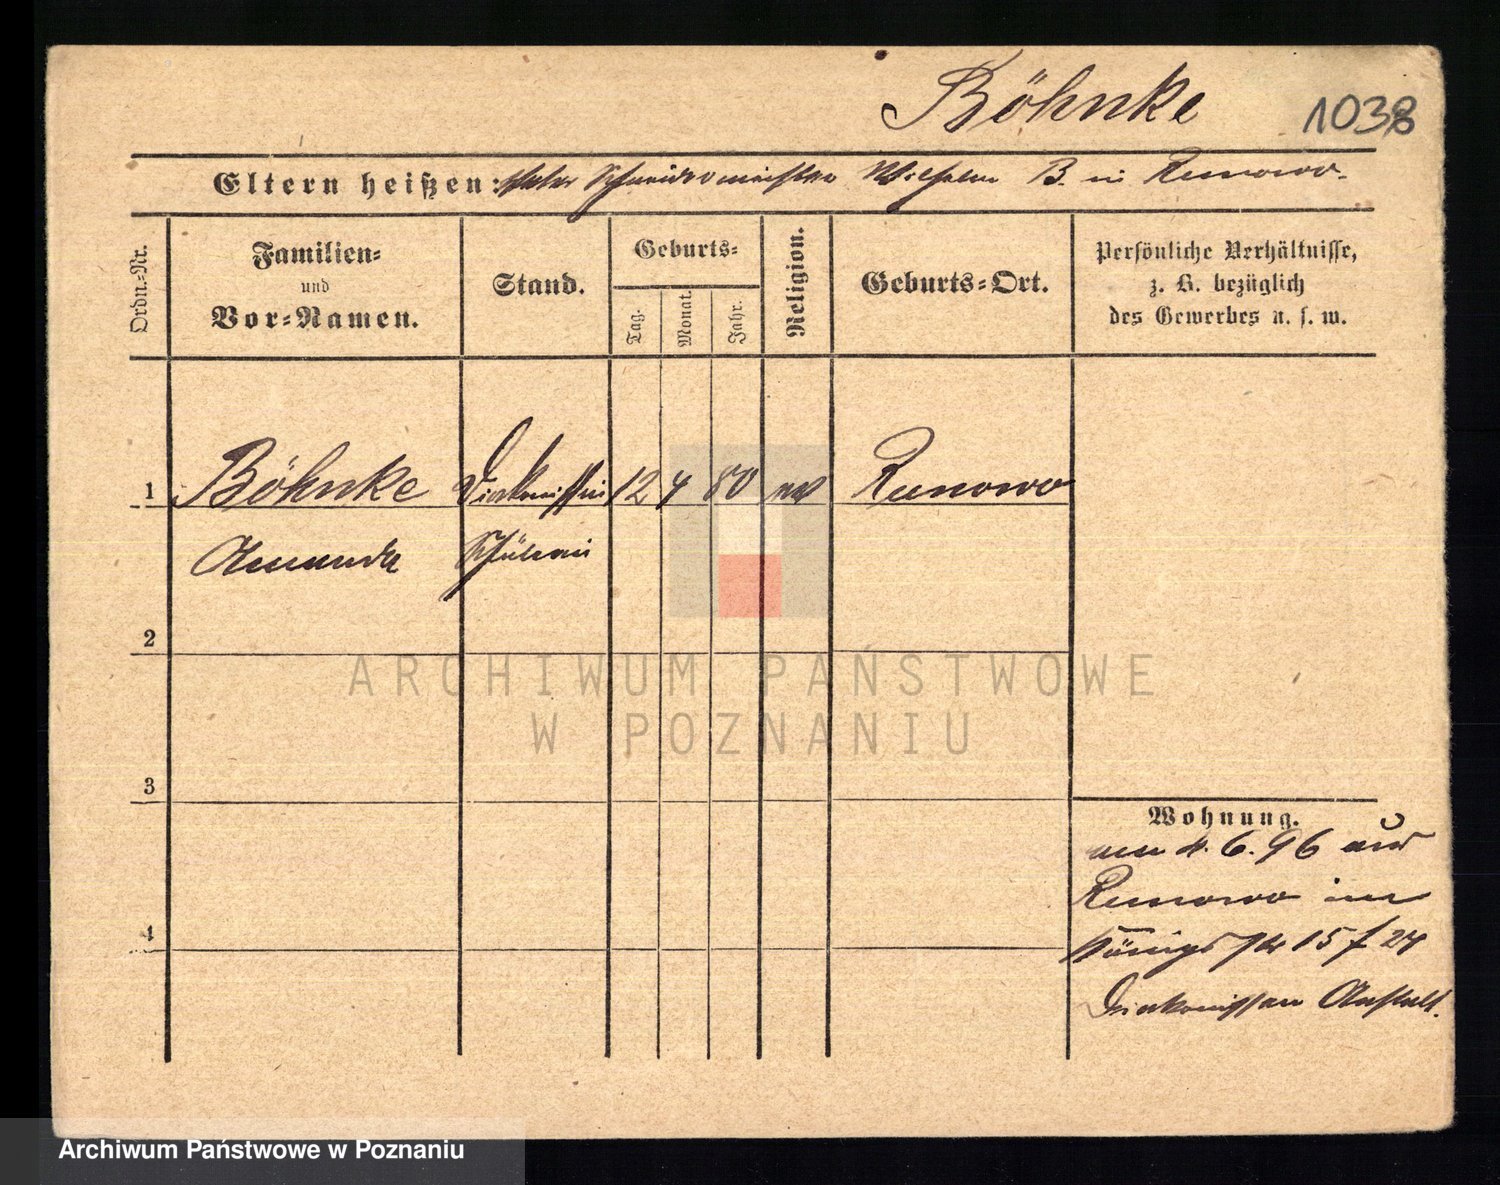 Böhnke 1038
Eltern heißen: Vater Schneidermeister Wilhelm B. in Runowo.
Ordn.-Nr.
Familien-
und
Vor-Namen.
Stand.
Geburts-
Tag.
Monat.
Jahr.
Religion.
Geburts-Ort.
Persönliche Verhältnisse,
z. B. bezüglich
des Gewerbes u. s. w.
1 Böhnke Diakonissin 12 4 80 ev Runowo
Amanda Schülerin
2
3
4
Wohnung.
am 4. 6. 96 aus
Runowo in
Königs 15 / 24
Diakonissen Anstalt.
ARCHIWUM PAŃSTWOWE
W POZNANIU
Archiwum Państwowe w Poznaniu